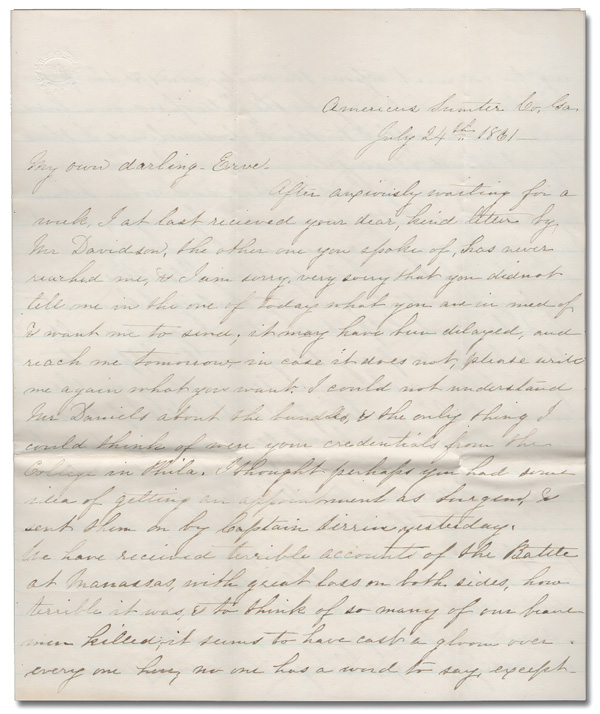 Americus Sumter Co, Ga.
July 24th 1861
My own darling Erve.
After anxiously waiting for a
week, I at last recieved your dear, kind letter by
Mr Davidson, the other one you spoke of, has never
reached me, & I am sorry, very sorry that you did not
tell me in the one of today what you are in need of,
& want me to send; it may have been delayed, and
reach me tomorrow, in case it does not, please write
me again what you want. I could not understand
Mr Daniels about the bundle, & the only thing I
could think of were your credentials from the
College in Phila. I thought perhaps you had some
idea of getting an appointment as Surgeon, &
sent them on by Captain yesterday.
We have received terrible accounts of the Battle
at Manassas, with great loss on both sides, how
terrible it was, & to think of so many of our brave
men killed, it seems to have cast a gloom over
every one here, no one has a word to say, except